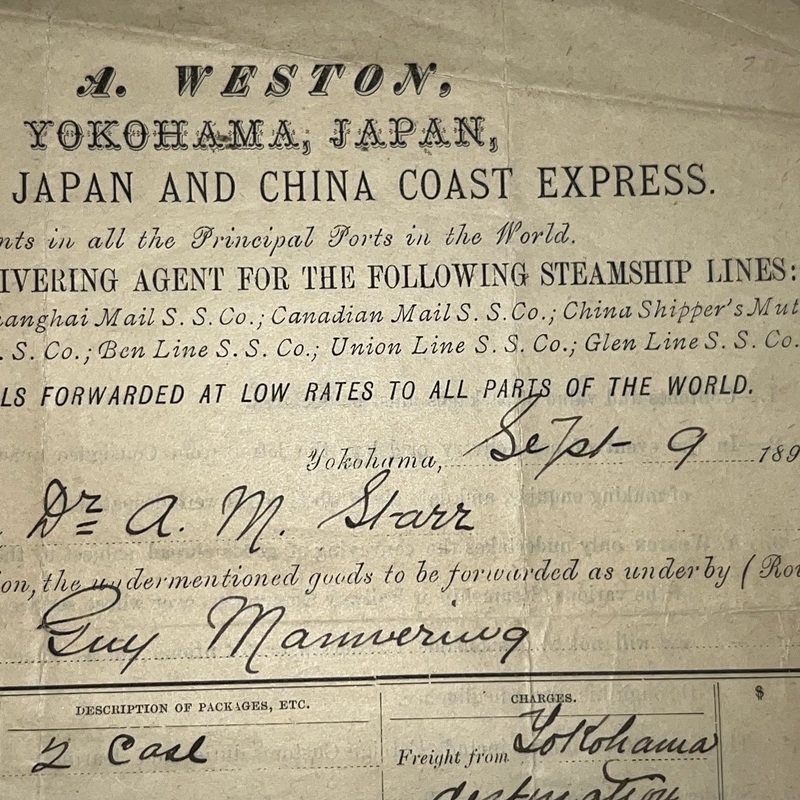 A. WESTON,
YOKOHAMA, JAPAN,
JAPAN AND CHINA COAST EXPRESS.
nts in all the Principal Ports in the World.
IVERING AGENT FOR THE FOLLOWING STEAMSHIP LINES:
hanghai Mail S. S. Co.; Canadian Mail S. S. Co.; China Shipper's Mut
. S. Co.; Ben Line S. S. Co.; Union Line S. S. Co.; Glen Line S. S. Co.
LS FORWARDED AT LOW RATES TO ALL PARTS OF THE WORLD.
Yokohama, Sept 9 189
Dr A. M. Starr
on, the undermentioned goods to be forwarded as under by (Rou
Guy Mannering
DESCRIPTION OF PACKAGES, ETC. CHARGES. $
2 Case Freight from Yokohama
destination